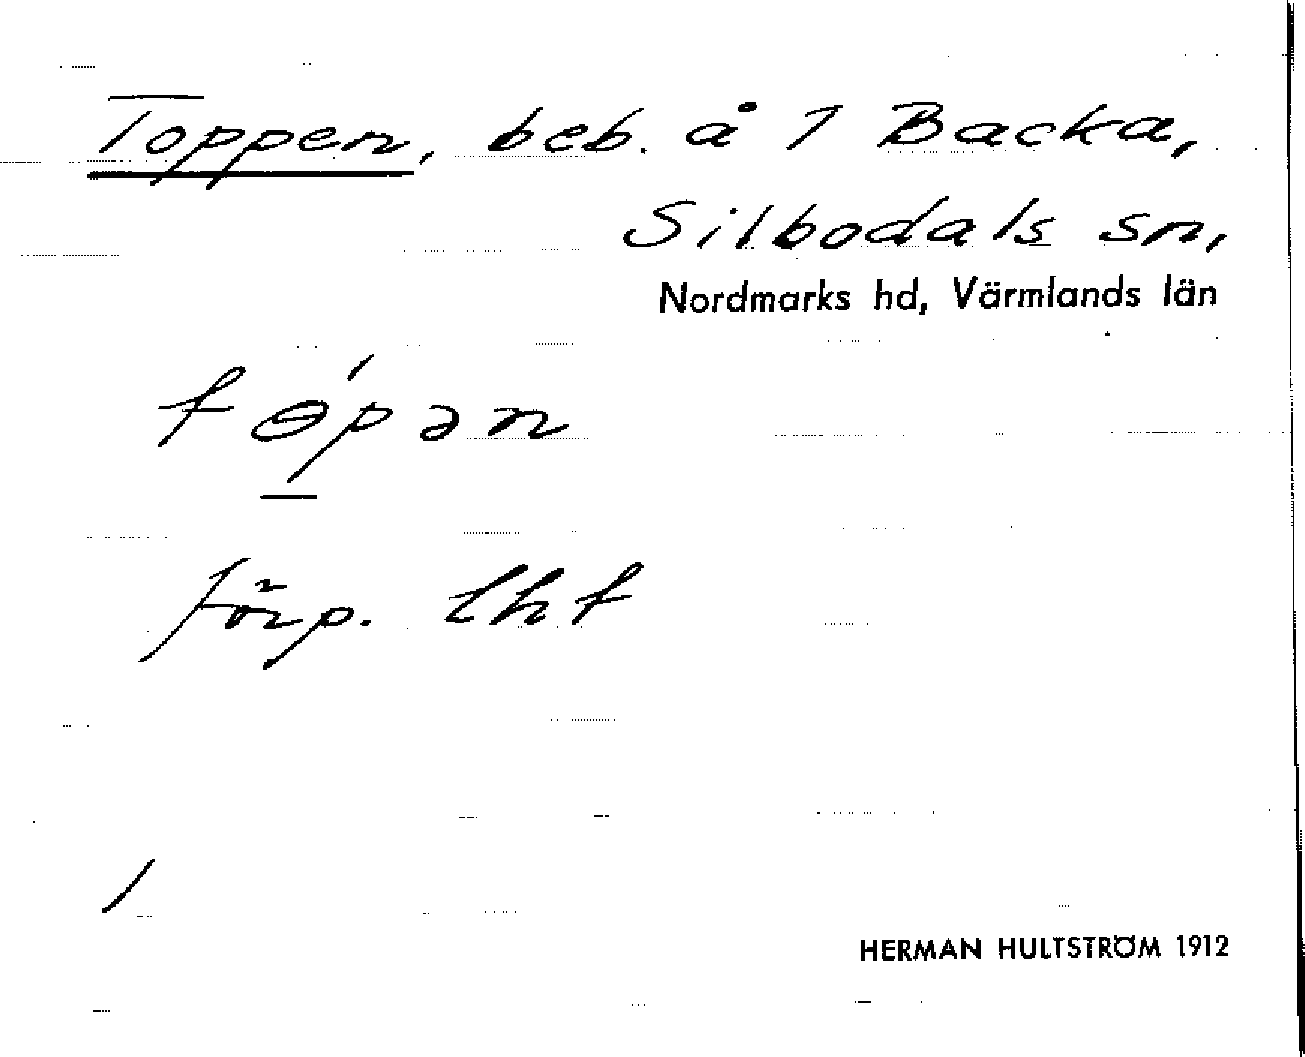 Toppen, beb. å 1 Backa,
Silbodals sn,
Nordmarks hd, Värmlands län
tɵ́pən
förp. lht
/
HERMAN HULTSTRÖM 1912